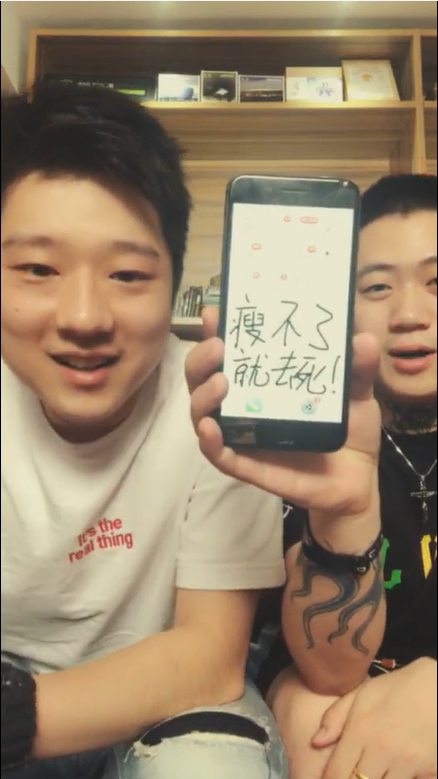 瘦不了
就去死!
It's the
real thing